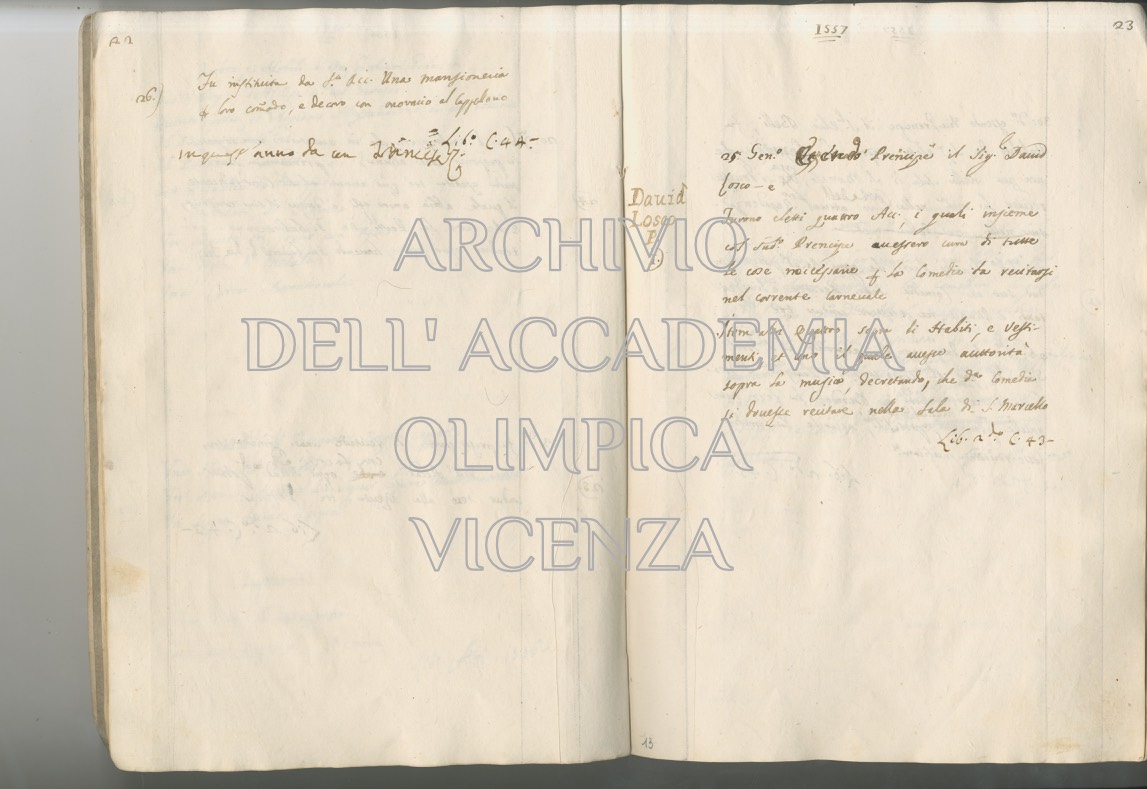 22
26.)
Fu instituita da S.ᵃ Acc. Una mansioneria
ꝑ loro comodo, e decoro con onorario al Cappellano
Lib.º C. 44-
in quest'anno da un
1557
23
25. Gen.º Principe il Sig. David
Losco - e
David
Losco
P.
Furono eletti quattro Acc. i quali insieme
col Sud.º Prencipe avessero cura di tutte
le cose necessarie ꝑ la Comedia da recitarsi
nel corrente Carnevale
Item altri quattro sopra li Habiti, e Vesti-
menti, et uno il quale avesse auttorità
sopra la musica, decretando, che d.ᵃ Comedia
si dovesse recitare nella Sala di S. Marcello
Lib. 2.do C. 43-
13
ARCHIVIO
DELL' ACCADEMIA
OLIMPICA
VICENZA